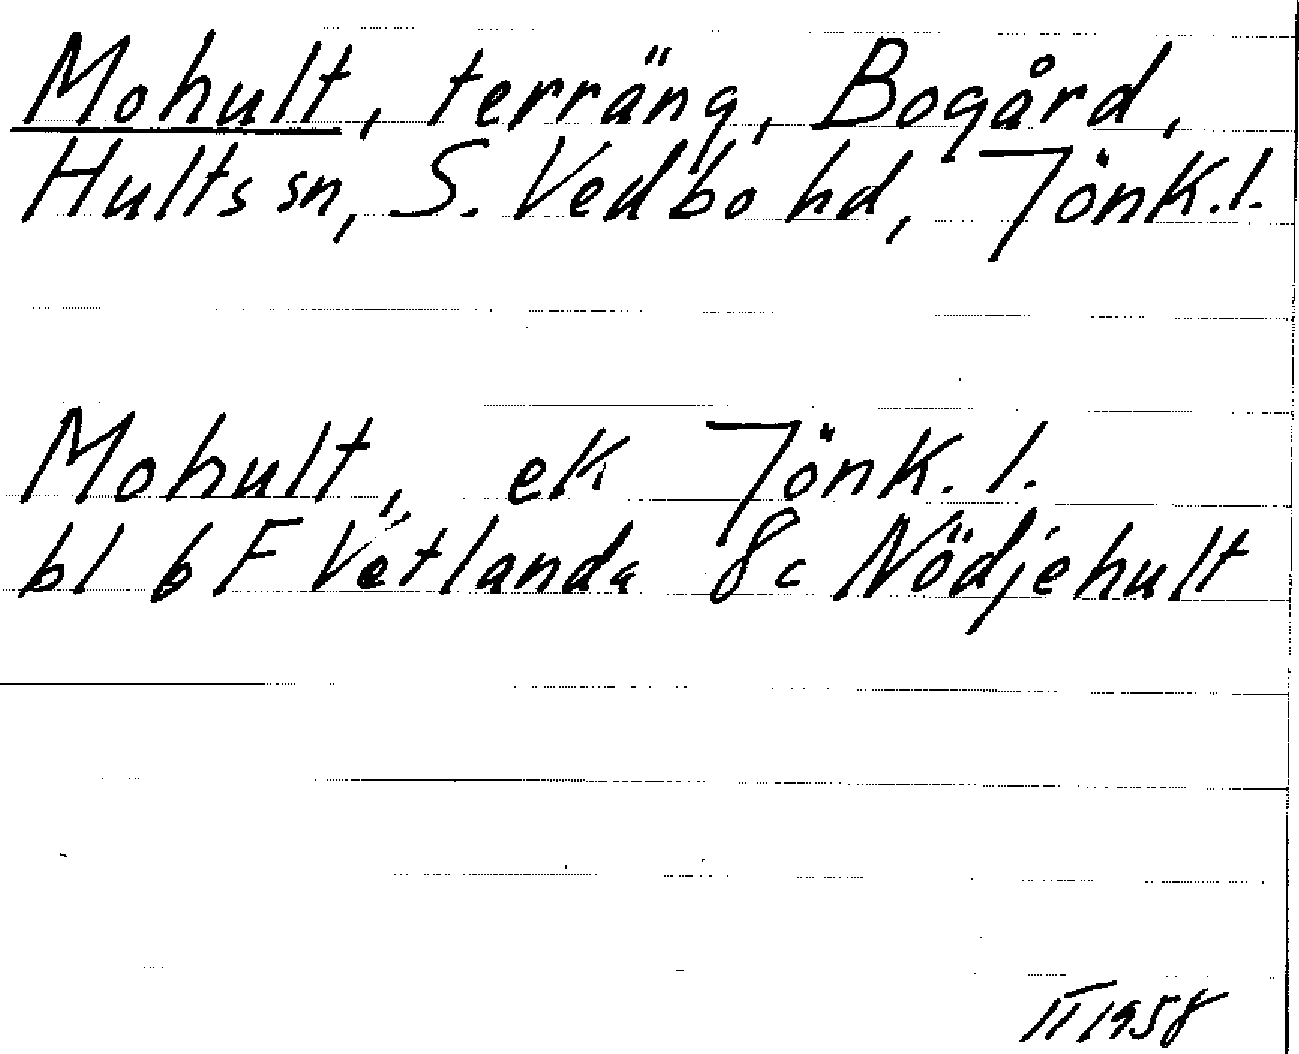 Mohult, terräng, Bogård,
Hults sn, S. Vedbo hd, Jönk.l.
Mohult, ek Jönk. l.
bl 6 F Vetlanda 8c Nödjehult
II 1958